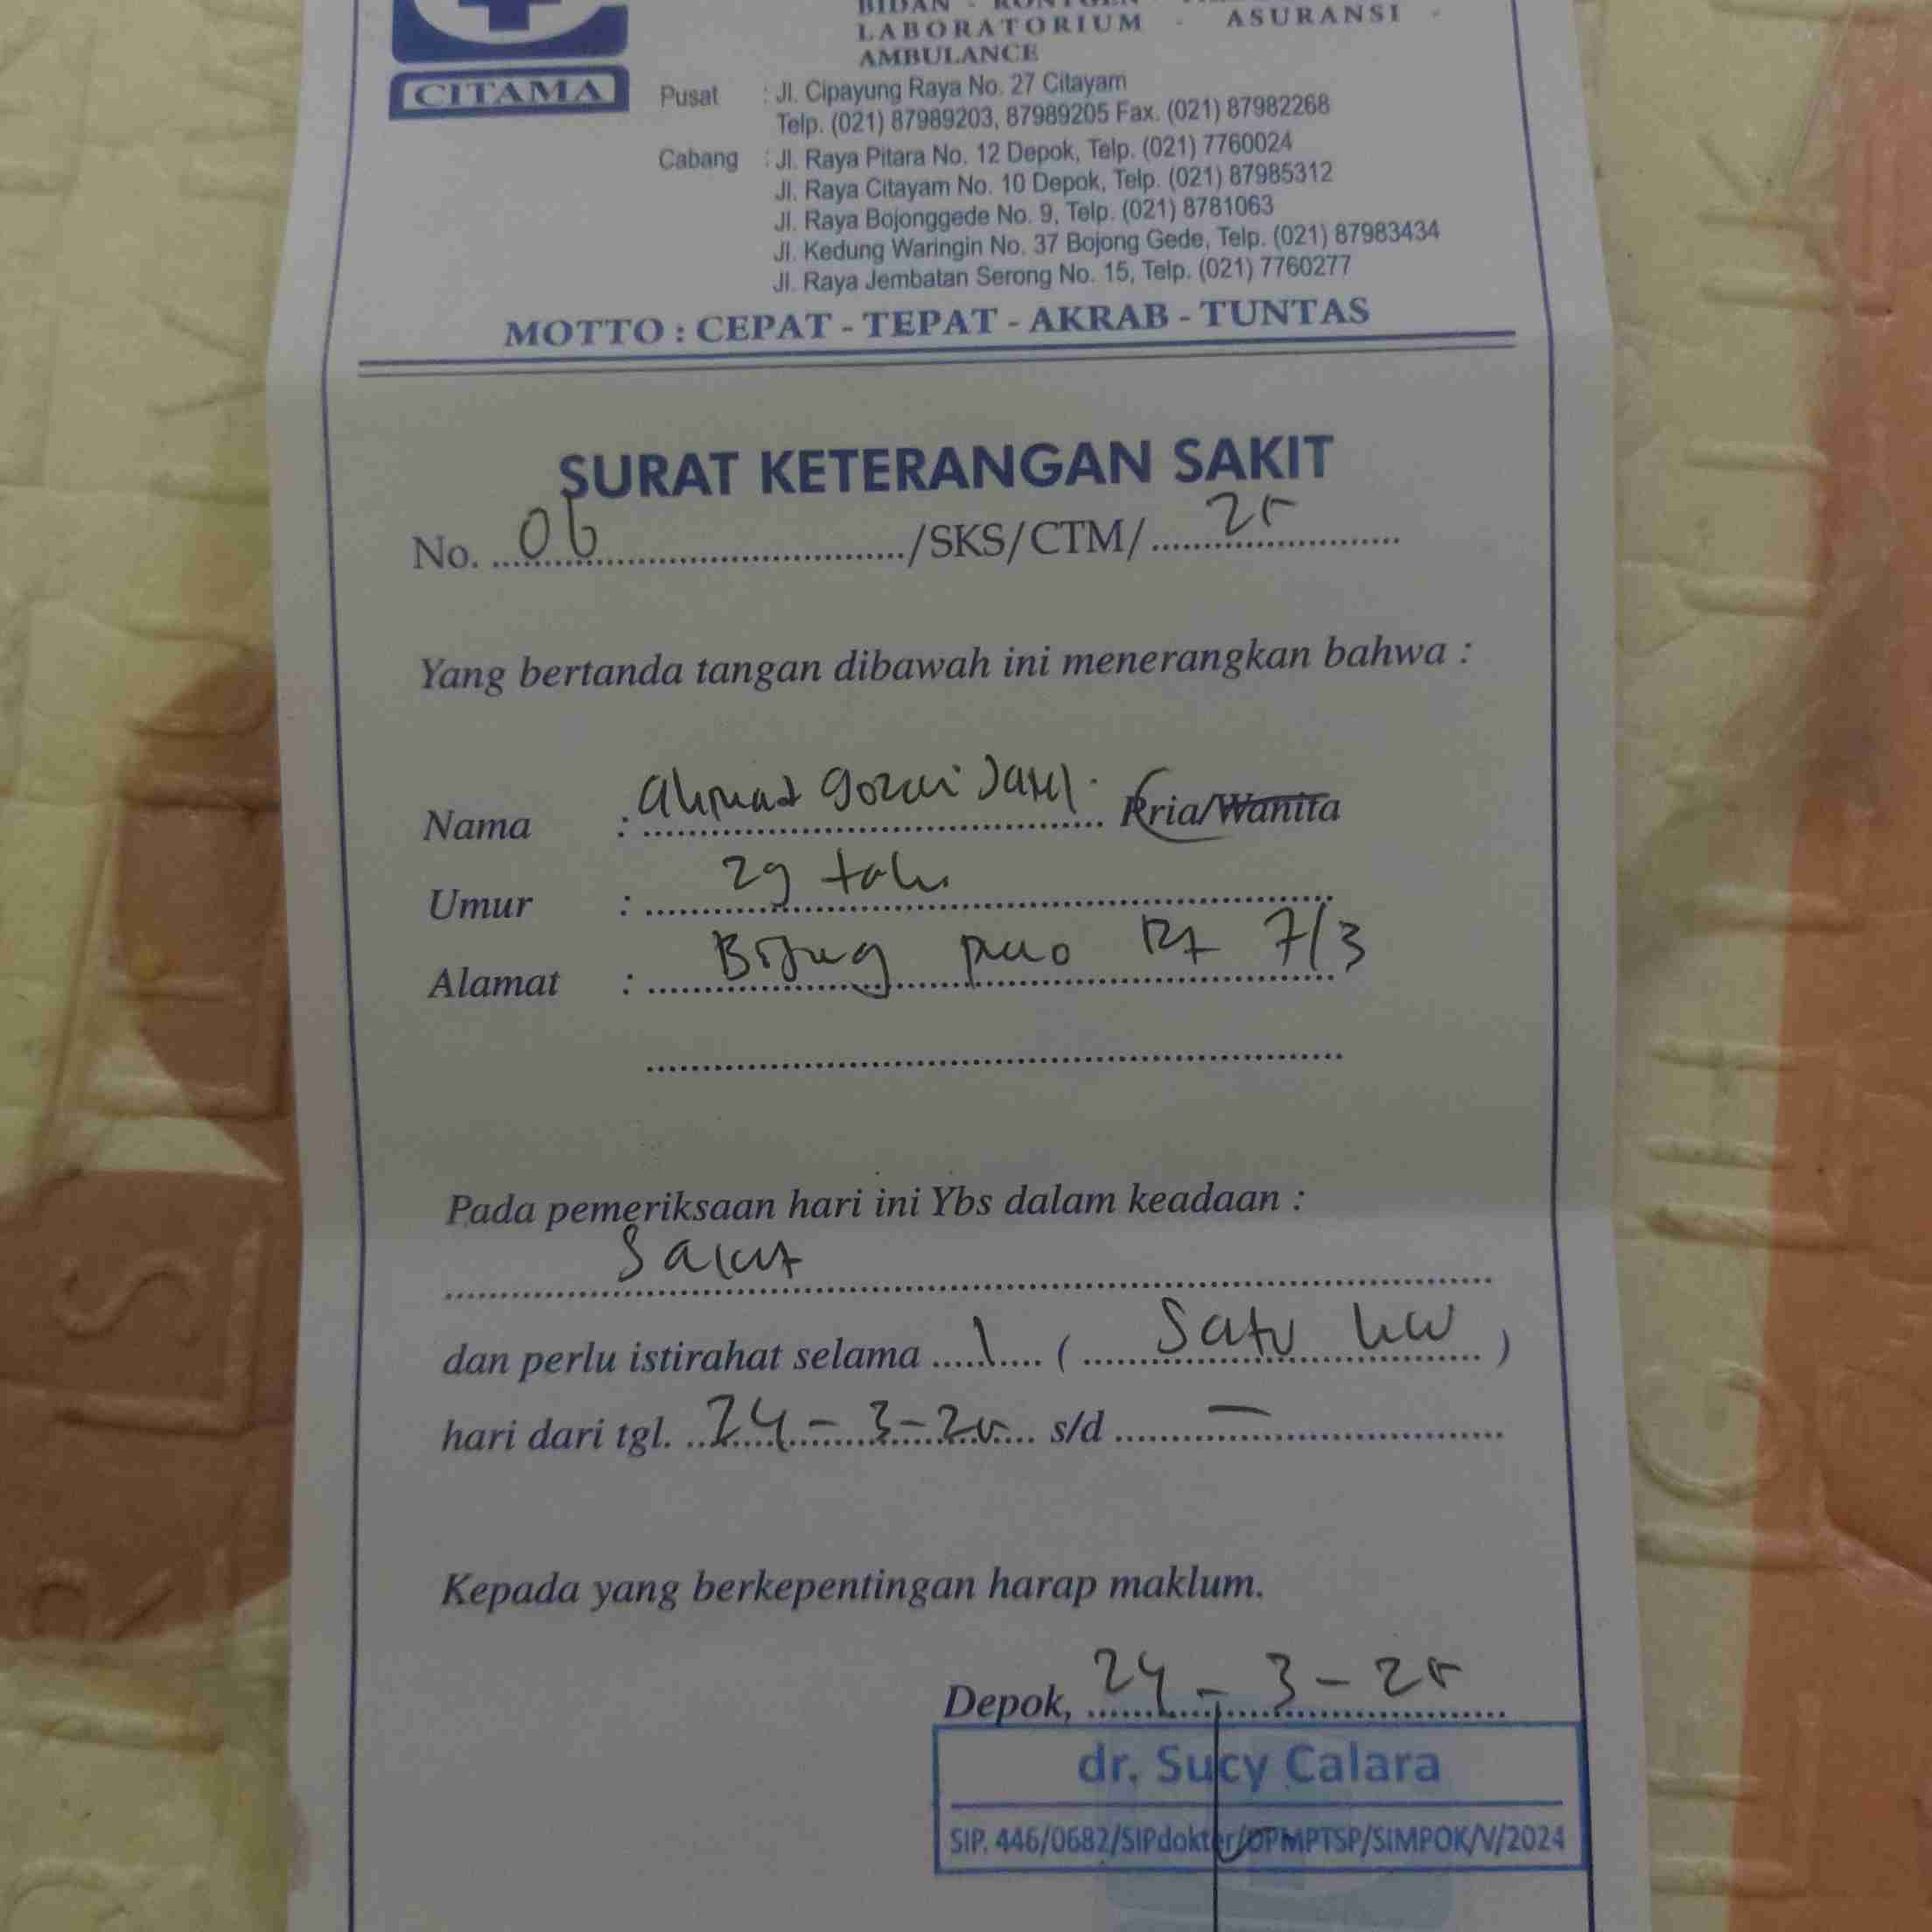 LABORATORIUM - ASURANSI -
AMBULANCE
CITAMA
Pusat : Jl. Cipayung Raya No. 27 Citayam
Telp. (021) 87989203, 87989205 Fax. (021) 87982268
Cabang : Jl. Raya Pitara No. 12 Depok, Telp. (021) 7760024
Jl. Raya Citayam No. 10 Depok, Telp. (021) 87985312
Jl. Raya Bojonggede No. 9, Telp. (021) 8781063
Jl. Kedung Waringin No. 37 Bojong Gede, Telp. (021) 87983434
Jl. Raya Jembatan Serong No. 15, Telp. (021) 7760277
MOTTO : CEPAT - TEPAT - AKRAB - TUNTAS
SURAT KETERANGAN SAKIT
No. 06 /SKS/CTM/ 25
Yang bertanda tangan dibawah ini menerangkan bahwa :
Nama : Ahmad Pria/Wanita
Umur : 29
Alamat : Rt 7/3
Pada pemeriksaan hari ini Ybs dalam keadaan :
Sakit
dan perlu istirahat selama 1 ( Satu )
hari dari tgl. 24-3-25 s/d -
Kepada yang berkepentingan harap maklum.
Depok, 24-3-25
dr. Sucy Calara
SIP. 446/0682/SIPdokter/DPMPTSP/SIMPOK/V/2024